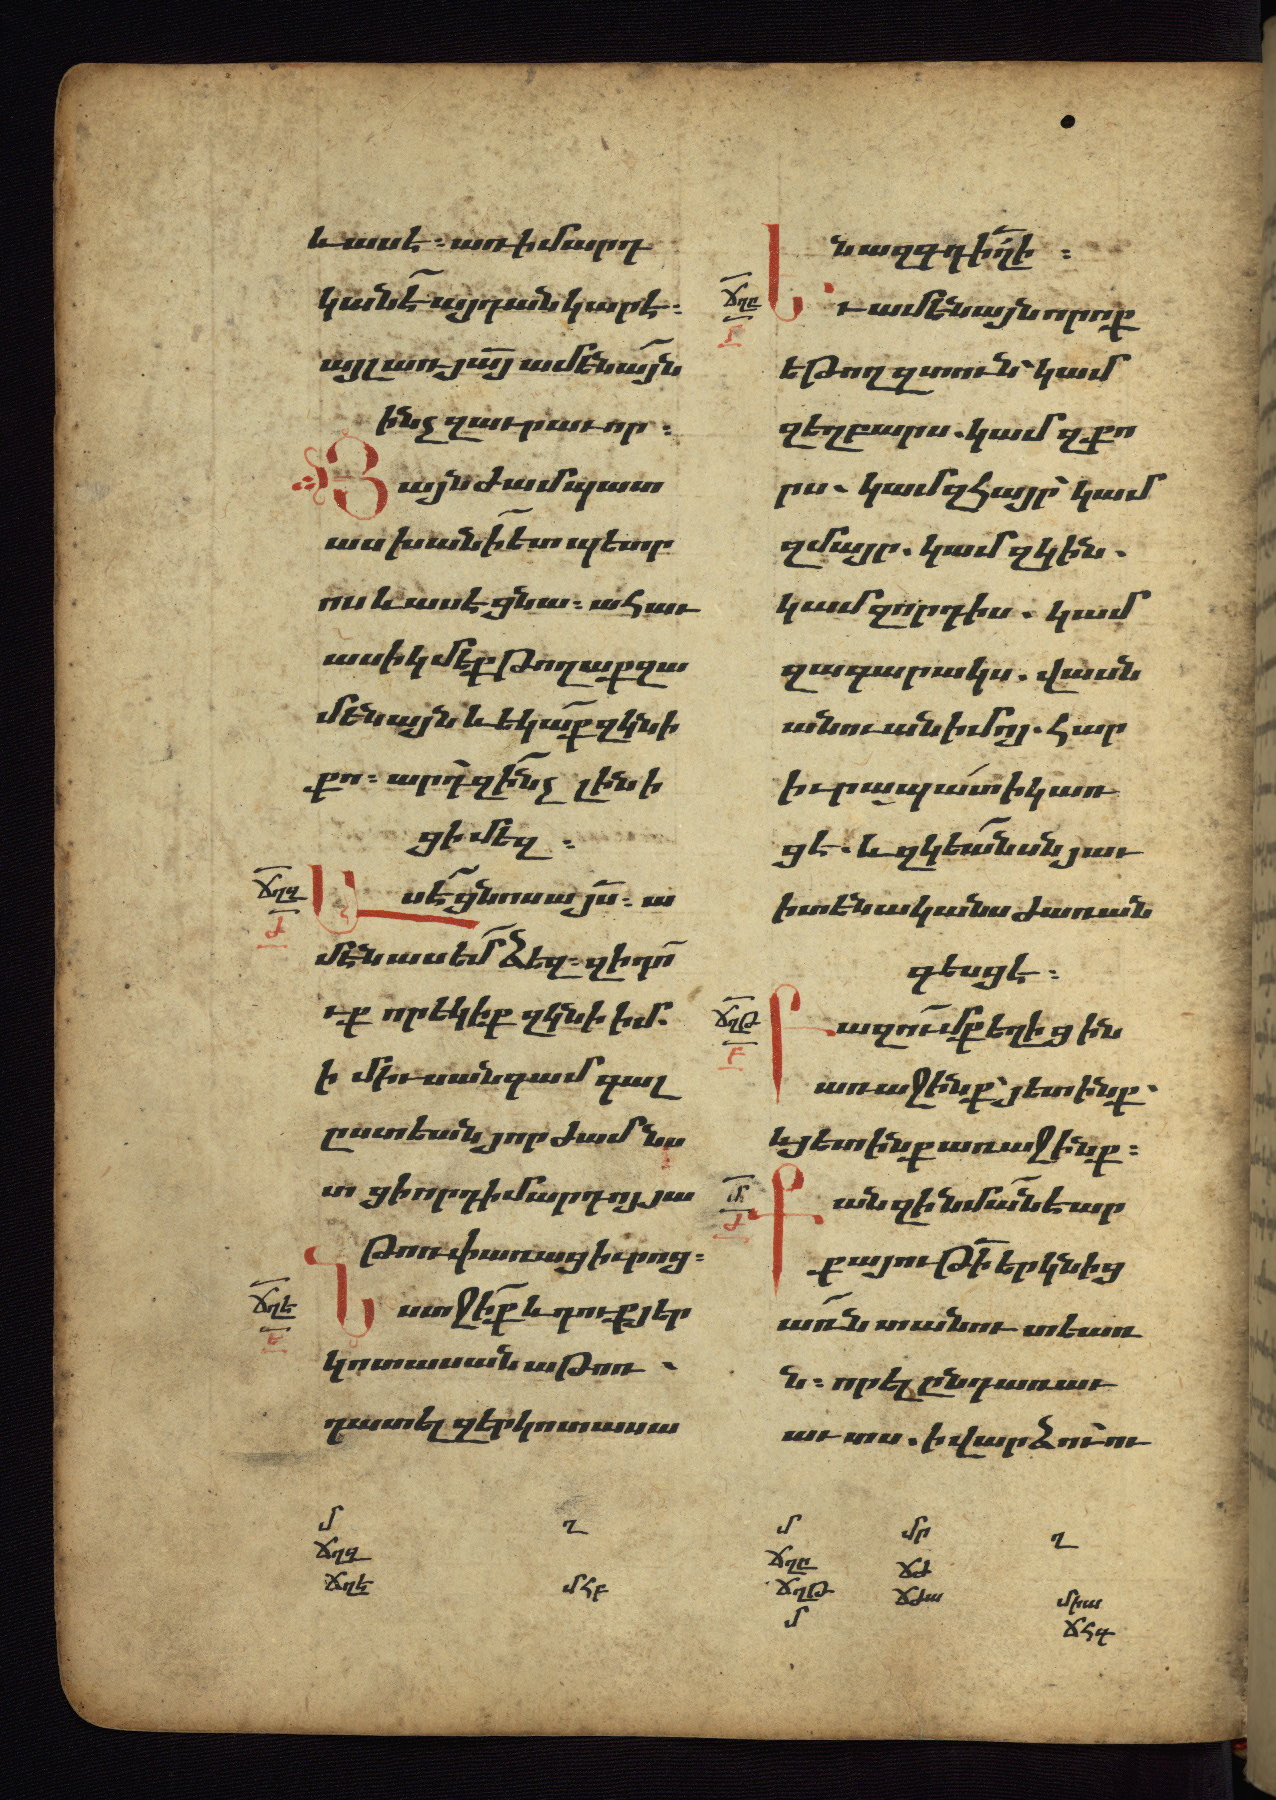 և ասէ։ առ ի մարդ
կանէ այդ անկար է։
այլ առ յայ ամենայն
ինչ զաւրաւոր։
Յայնժամ պատ
ասխանի ետ պետր
ոս և ասէ ցնա։ ահաւ
ասիկ մեք թողաք զա
մենայն և եկաք զկնի
քո։ արդ՝ զինչ լինի
ցի մեզ։
ճղզ
Ժ
Ասէ ցնոսա յս։ ա
մէն ասեմ ձեզ։ զի դո
ւք որ եկիք զկնի իմ.
ի միւսանգամ գալ
ըստեան յորժամ նս
տցի որդի մարդոյ յա
թոռ փառաց իւրոց։
ճղէ
Ե
Նստջիք և դուք յեր
կոտասան աթոռ.
դատել զերկոտասա
ն ազգդ իղի։
ճղը
Բ
Եւ ամենայն որ ոք
եթող զտուն՝ կամ
զեղբարս. կամ զքո
րս. կամ զհայր՝ կամ
զմայր. կամ զկին.
կամ զորդիս. կամ
զագարակս. վասն
անուան իմոյ. հար
իւրապատիկ առ
ցէ. և զկեանսն յաւ
իտենականս ժառան
գեսցէ։
ճղթ
Բ
Բազումք եղիցին
առաջինք՝ յետինք.
և յետինք առաջինք։
մ
Ժ
Քանզի նման է ար
քայութի երկնից
առն տանուտեառ
ն։ որ ել ընդ առաւ
աւտս. ի վարձու ու
մ ղ
ճղզ
ճղէ մհբ
մ մր ղ
ճղը ճժ
ճղթ ճժա
մ ճհգ